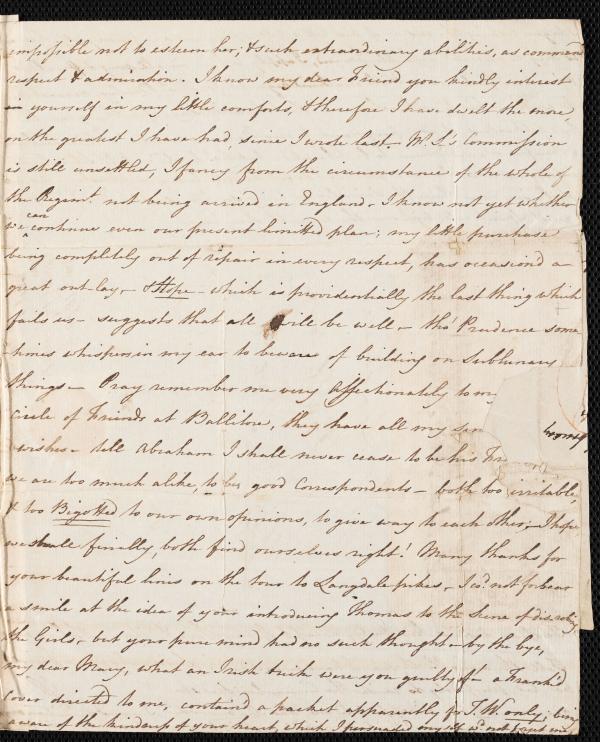 impossible not to esteem her; & such extraordinary abilities, as command
respect & admiration. I know my dear Friend you kindly interest
yourself in my little comforts, & therefore I have dwelt the more
on the greatest I have had, since I wrote last. Mr. S.'s Commission
is still unsettled, I fancy from the circumstance of the whole of
the Regimt. not being arrived in England. I know not yet whether
we can continue even our present limitted plan; my little purchase
being completely out of repair in every respect, has occasiond a
great out-lay, - & Hope - which is providentially the last thing which
fails us - suggests that all will be well, - tho' Prudence some
times whispers in my ear to beware of building on Sublunary
things - Pray remember me very affectionately to my
circle of Friends at Ballitore, they have all my
wishes - tell Abraham I shall never cease to be his
we are too much alike, to be good Correspondents - both too irritable,
& too Bigotted to our own opinions, to give way to each other; I hope
we shall finally, both find ourselves right! Many thanks for
your beautiful lines on the tour to Langdale pikes, I cd. not forbear
a smile at the idea of your introducing Thomas to the Scene of disrobing
the Girls, - but your pure mind had no such thought - by the bye,
my dear Mary, what an Irish trick were you guilty of! - a Frank'd
cover directed to me, contain'd a packet apparently for T.W. only; being
aware of the kindness of your heart, which I persuaded myself wd. not